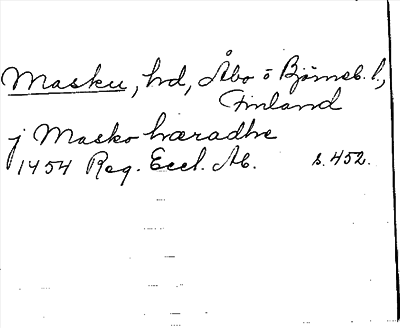 Masku, hd, Åbo o Björneb. l.,
Finland
j Masko hæradhe
1454 Reg. Eccl. Ab. s. 452.